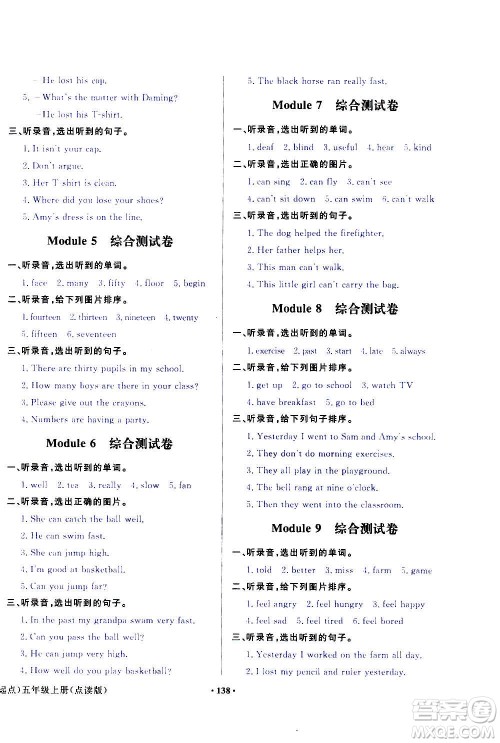 －He lost his cap.
5. －What's the matter with Daming?
－He lost his T-shirt.
三、听录音,选出听到的句子。
1. It isn't your cap.
2. Don't argue.
3. Her T-shirt is clean.
4. Where did you lose your shoes?
5. Amy's dress is on the line.
Module 5 综合测试卷
一、听录音,选出听到的单词。
1. face 2. many 3. fifty 4. floor 5. begin
二、听录音,给下列图片排序。
1. fourteen 2. thirteen 3. nineteen 4. twenty
5. fifteen 6. seventeen
三、听录音,选出听到的句子。
1. There are thirty pupils in my school.
2. How many boys are there in your class?
3. Please give out the crayons.
4. Numbers are having a party.
Module 6 综合测试卷
一、听录音,选出听到的单词。
1. well 2. tea 3. really 4. slow 5. fan
二、听录音,选出正确的图片。
1. She can catch the ball well.
2. She can jump high.
3. I am good at basketball.
4. Can you jump far?
三、听录音,选出听到的句子。
1. In the past my grandpa swam very fast.
2. Can you pass the ball well?
3. Sam can jump really high.
4. How well do you play basketball?
5. The black horse ran really fast.
Module 7 综合测试卷
一、听录音,选出听到的单词。
1. deaf 2. blind 3. useful 4. hear 5. kind
二、听录音,选出正确的图片。
1. can sing 2. can fly 3. can see
4. can't sit down 5. can swim 6. can't walk
三、听录音,选出听到的句子。
1. The dog helped the firefighter.
2. Her father helps her.
3. What can you hear?
4. This man can't walk.
5. This little girl can't carry the bag.
Module 8 综合测试卷
一、听录音,选出听到的单词。
1. exercise 2. past 3. start 4. late 5. always
二、听录音,给下列图片排序。
1. get up 2. go to school 3. watch TV
4. have breakfast 5. go to bed
三、听录音,给下列句子排序。
1. Yesterday I went to Sam and Amy's school.
2. They don't do morning exercises.
3. They all play in the playground.
4. The bell rang at nine o'clock.
5. Then they went into the classroom.
Module 9 综合测试卷
一、听录音,选出听到的单词。
1. told 2. better 3. miss 4. farm 5. game
二、听录音,给下列图片排序。
1. feel angry 2. feel hungry 3. feel sad
4. feel tired 5. feel bored 6. feel happy
三、听录音,选出听到的句子。
1. Yesterday I worked on the farm all day.
2. I lost my pencil and ruler yesterday.
起点)五年级上册(点读版)
· 138 ·